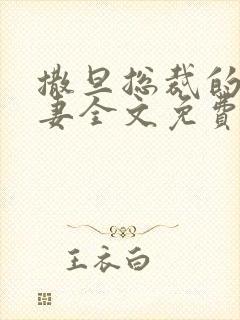 撒旦总裁的
妻全文免費
王衣白